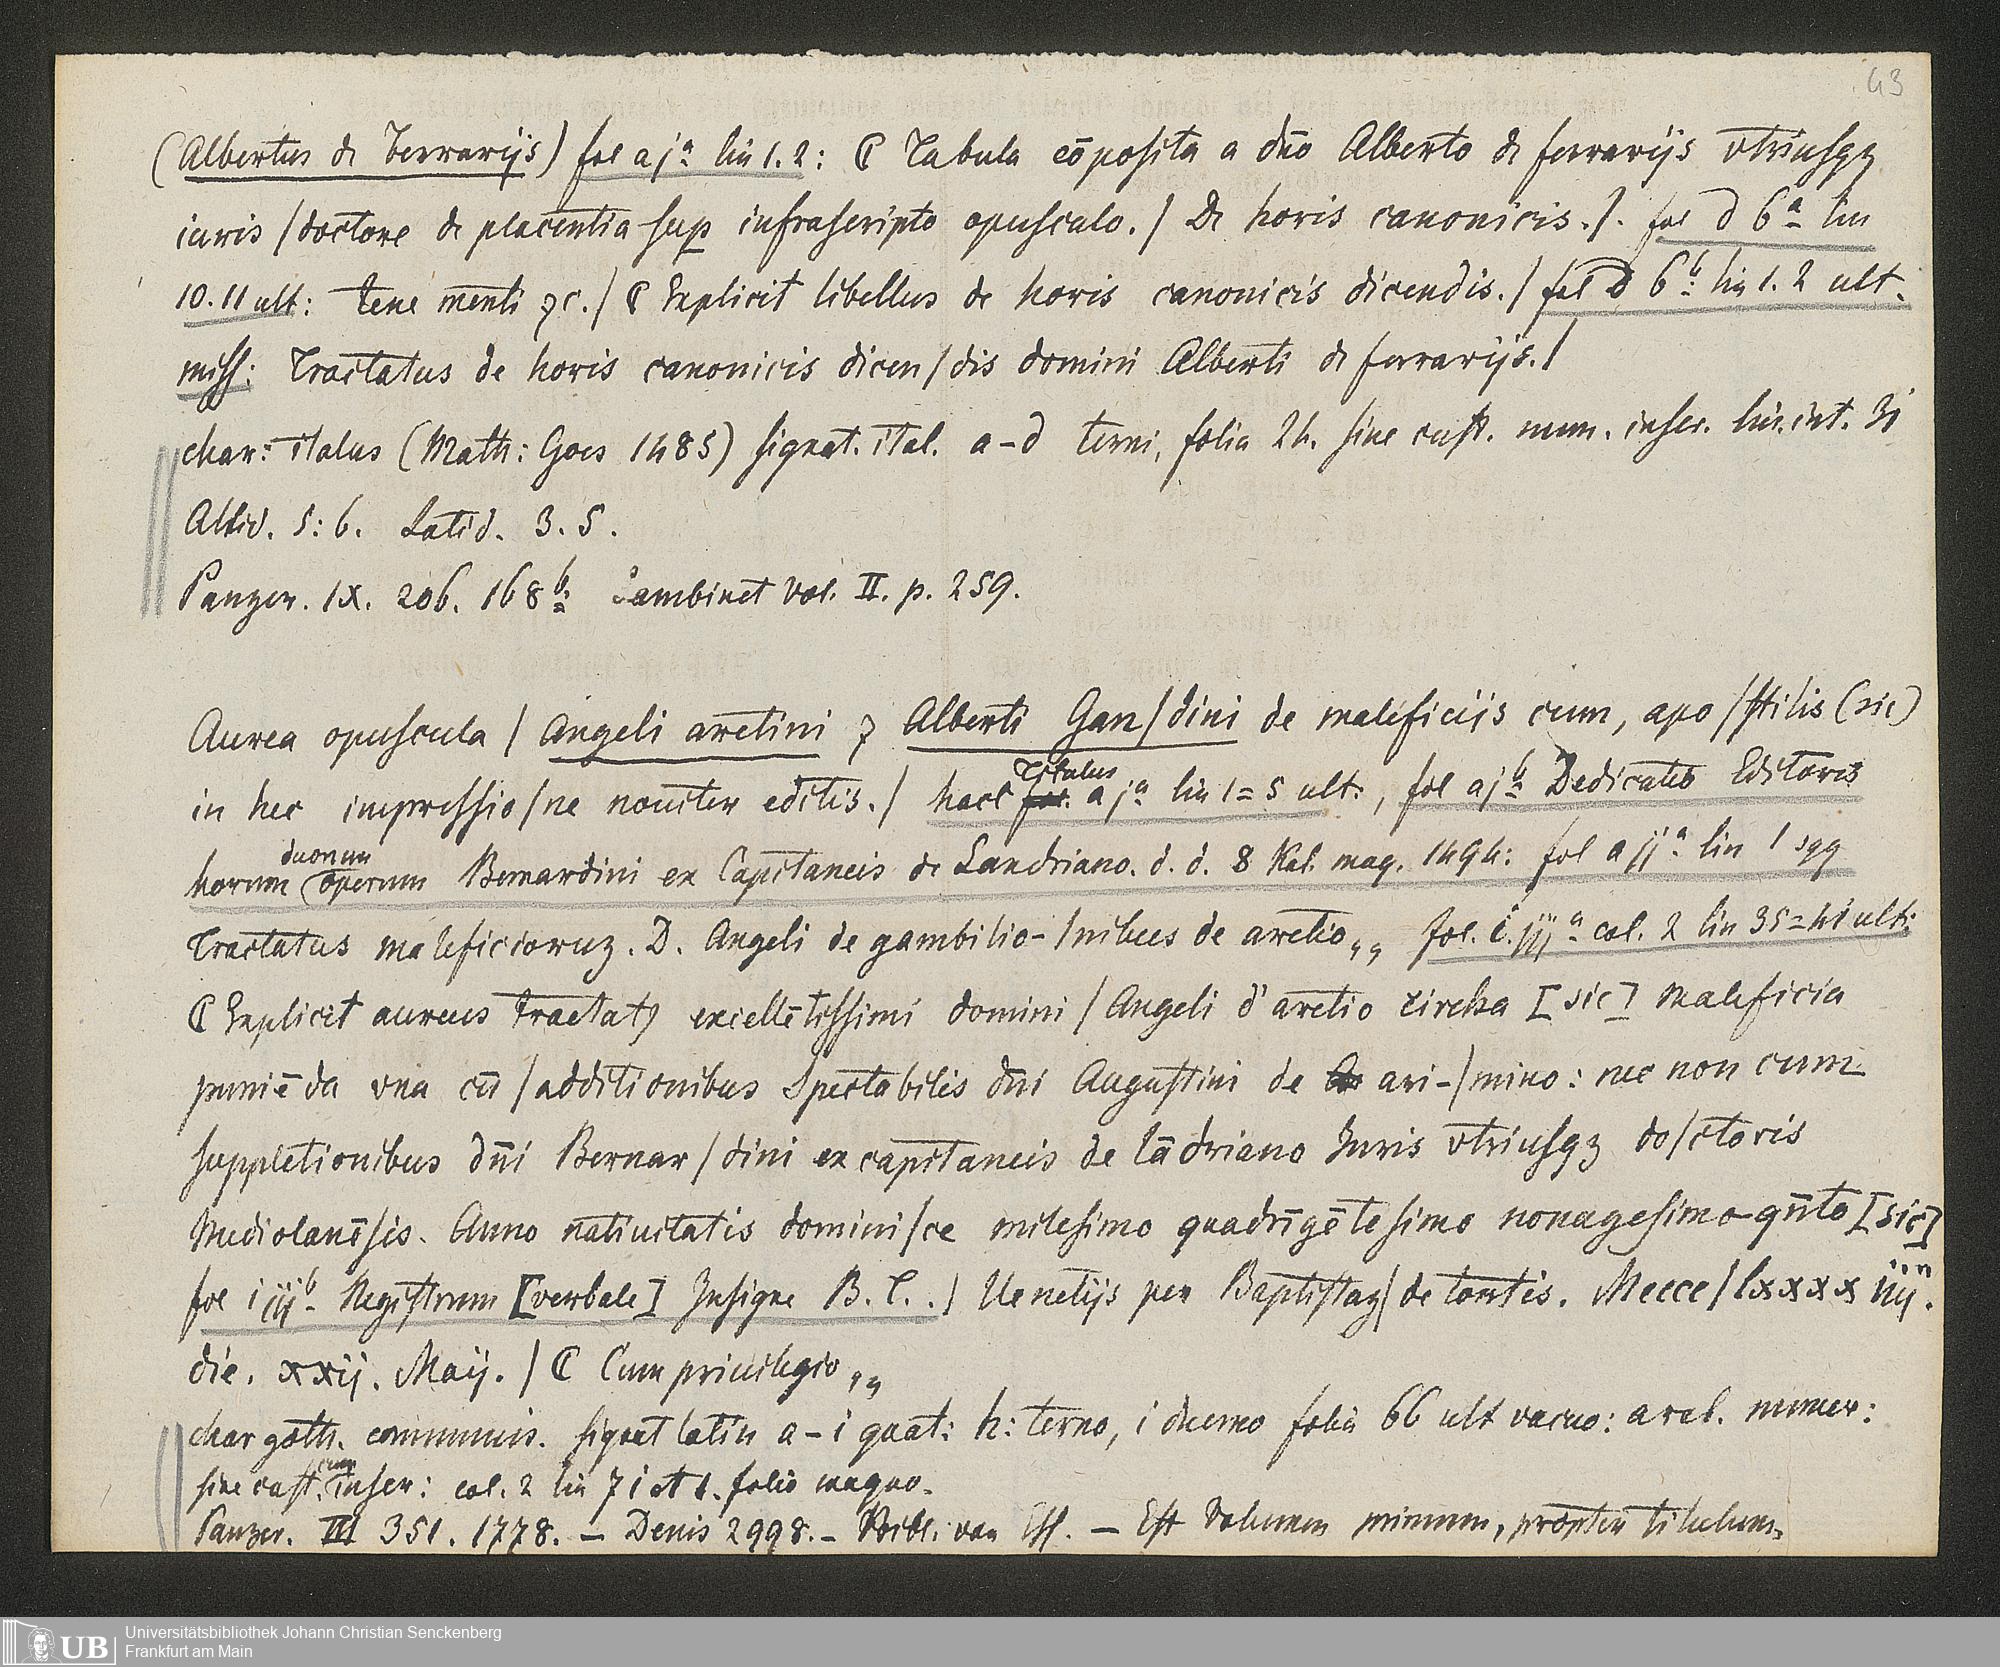 43
(Albertus de Ferrarijs) fol a jª lin 1. 2: ℂ Tabula cōposita a dn̄o Alberto de ferrarijs vtriusqȝ
iuris / doctore de placentia sup infrascripto opusculo. / De horis canonicis. /. fol d 6ª lin
10. 11 ult: tene menti ⁊c. / ℂ Explicit libellus de horis canonicis dicendis. / fol d 6ᵇ lin 1. 2 ult.
miss: Tractatus de horis canonicis dicen / dis domini Alberti de ferrarijs. /
char: italus (Math: Goes 1485) signat. ital. a-d terni, folia 24. sine cust. num. inscr. lin. int. 31
Altid. 5:6. Latid. 3. 5.
Panzer. IX. 206. 168ᵇ Lambinet Vol. II. p. 259.
Aurea opuscula / Angeli aretini ⁊ Alberti Gan / dini de maleficijs cum, apo / stilis (sic)
in hec impressio / ne nouiter editis. / haec Titulus a jª lin 1=5 ult:, fol a jᵇ Dedicatio Editoris
horum duorum operum Bernardini ex Capitaneis de Landriano. d. d. 8 Kal. mag. 1494: fol a ijª lin 1 sqq
Tractatus maleficioruȝ. D. Angeli de gambilio- / nibus de aretio „ fol. i. iijª col. 2 lin 35=41 ult:
ℂ Explicit aureus tractatꝯ excellētissimi domini / Angeli d' aretio circha [sic] maleficia
puniēda vna cū / additionibus Spectabilis dn̄i Augustini de ari- / mino: nec non cum
suppletionibus dn̄i Bernar / dini ex capitaneis de lādriano Juris vtriusqȝ do / ctoris
Mediolanēsis. Anno natiuitatis domini / ce milesimo quadrīgētesimo nonagesimo qn̄to [sic]
fol i iijᵇ Registrum [verbale] Insigne B. T. . / Uenetijs per Baptistaȝ / de tortis. Mcccc / lxxxx iiij.
die. xxij. Maij. / ℂ Cum priuilegio „
char goth. communis. signat latin a-i quat: h: terno, i duerno folia 66 ult vacuo: arab. numer:
sine cust. cum inscr: col. 2 lin 71 et 1. folio magno.
Panzer. III 351. 1778. — Denis 2998. — Bibl. van Ess. — Est Volumen primum, propter titulum-
Universitätsbibliothek Johann Christian Senckenberg
Frankfurt am Main
UB